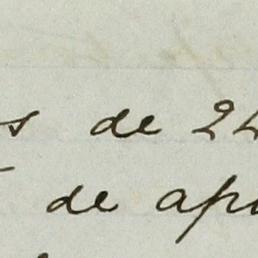 s de 24
de apo